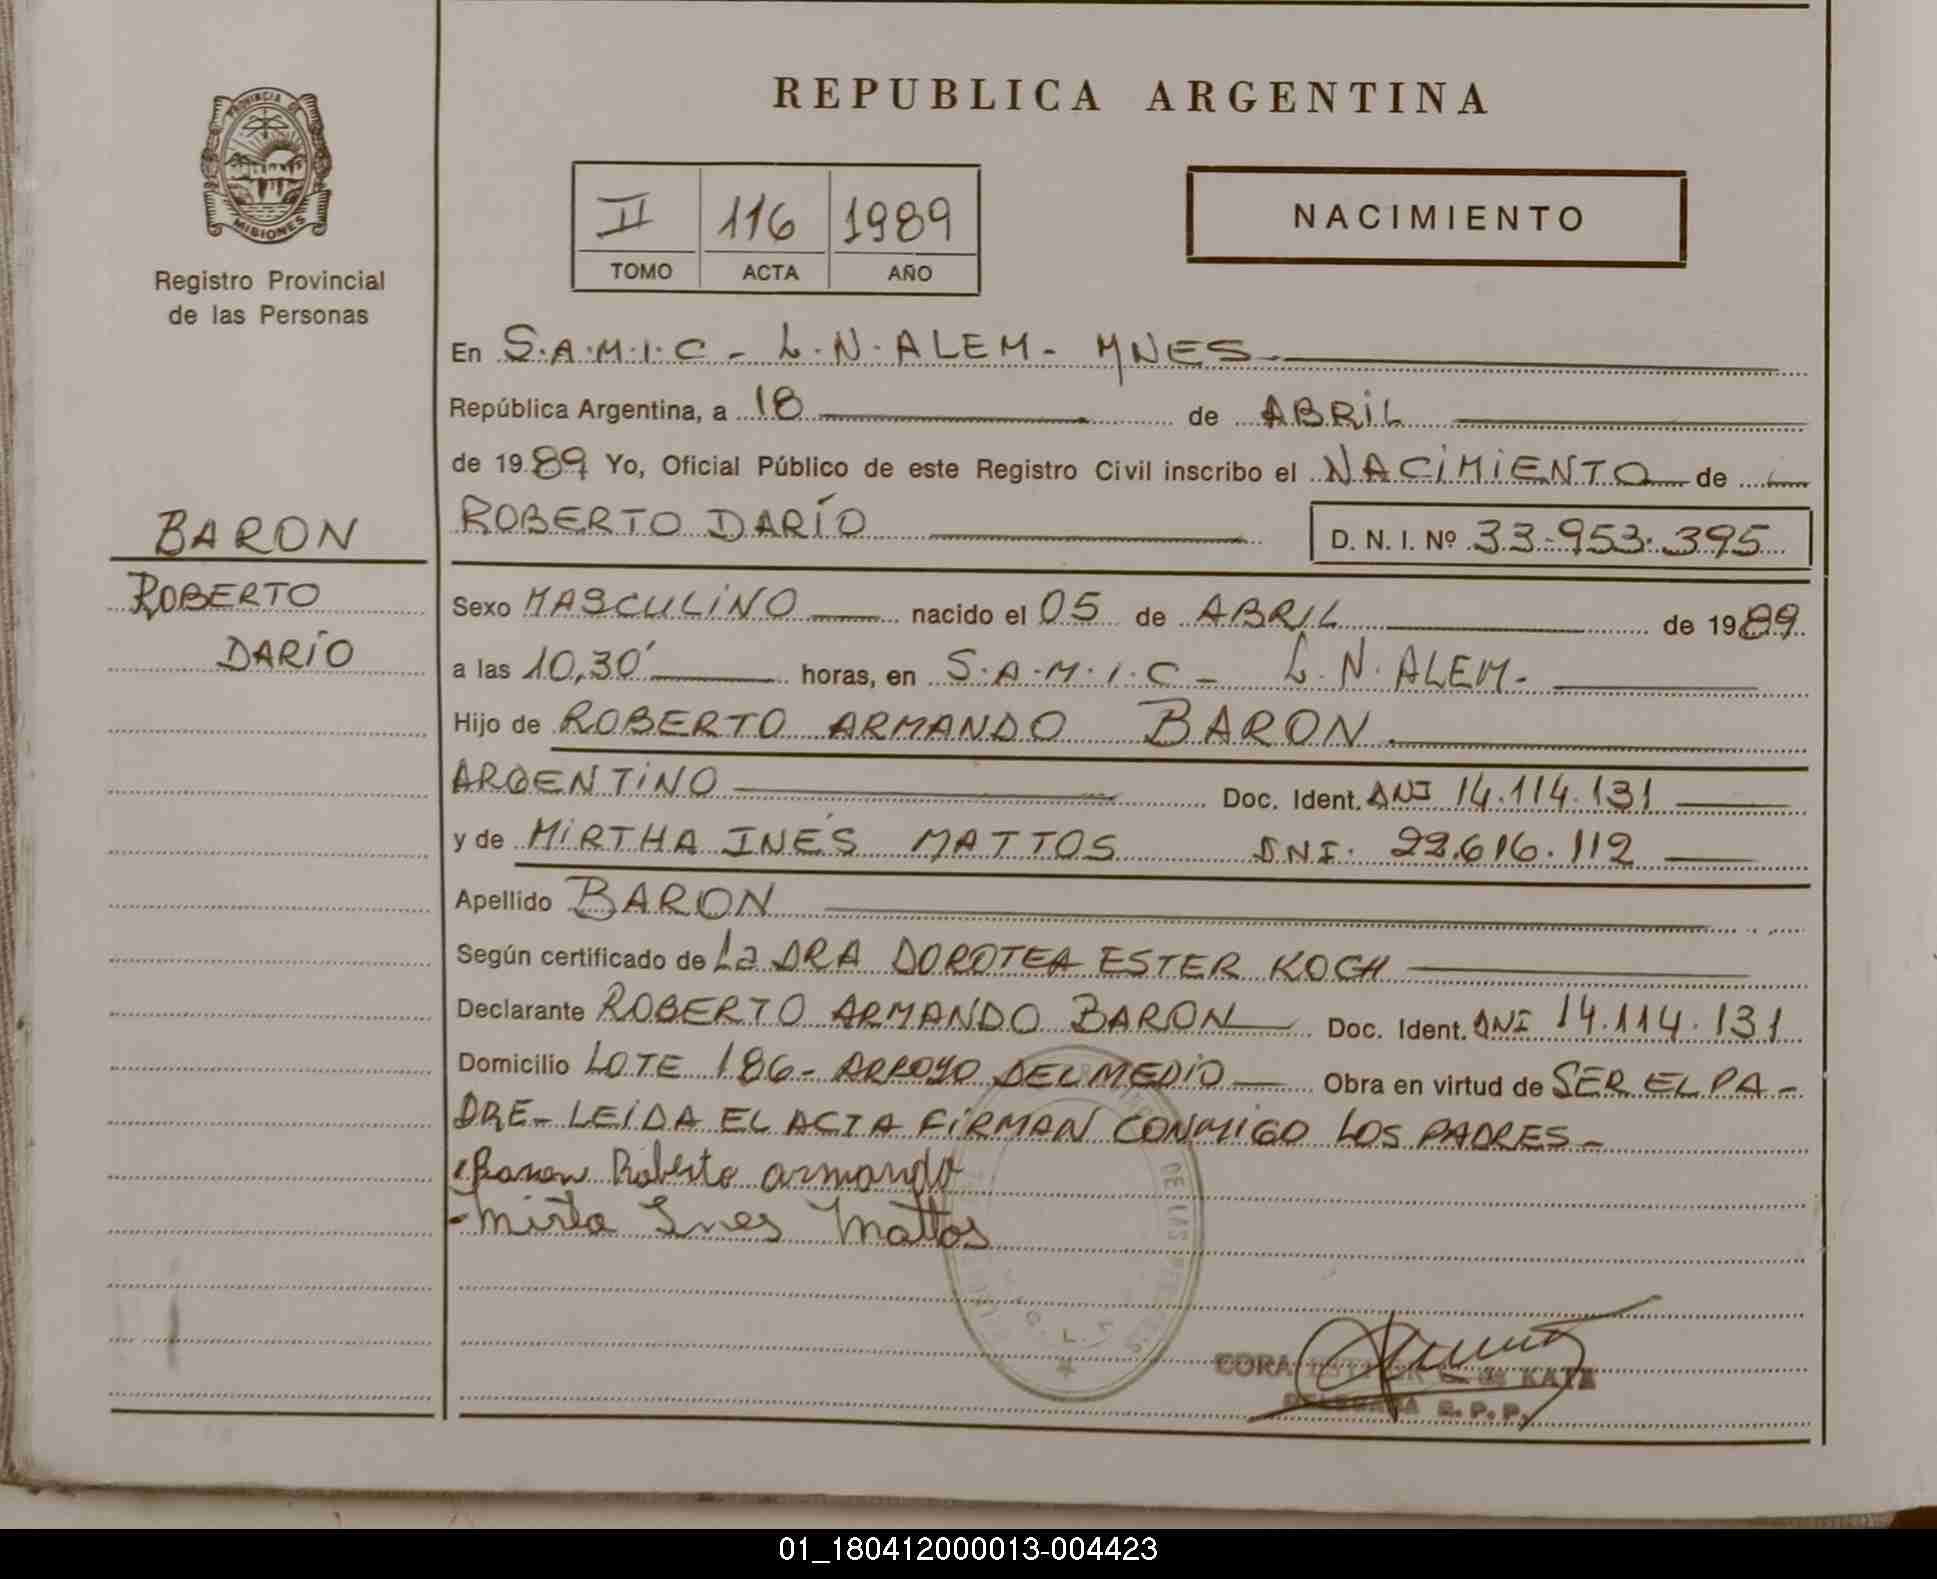 REPUBLICA ARGENTINA
PROVINCIA DE
MISIONES
Registro Provincial
de las Personas
II 116 1989
TOMO ACTA AÑO
NACIMIENTO
En S.A.M.I.C - L.N.ALEM - MNES
República Argentina, a 18 de ABRIL
de 1989 Yo, Oficial Público de este Registro Civil inscribo el NACIMIENTO de
ROBERTO DARÍO D. N. I. Nº 33.953.395
BARON
ROBERTO
DARÍO
Sexo MASCULINO nacido el 05 de ABRIL de 1989
a las 10,30' horas, en S.A.M.I.C - L.N.ALEM-
Hijo de ROBERTO ARMANDO BARON
ARGENTINO Doc. Ident. DNI 14.114.131
y de MIRTHA INÉS MATTOS DNI. 22.616.112
Apellido BARON
Según certificado de La DRA DOROTEA ESTER KOCH
Declarante ROBERTO ARMANDO BARON Doc. Ident. DNI 14.114.131
Domicilio LOTE 186 - ARROYO DEL MEDIO Obra en virtud de SER EL PA-
DRE - LEIDA EL ACTA FIRMAN CONMIGO LOS PADRES-
Baron Roberto armando
- Mirta Ines Mattos
DE LAS
CORA KATZ
R. P. P.
01_180412000013-004423